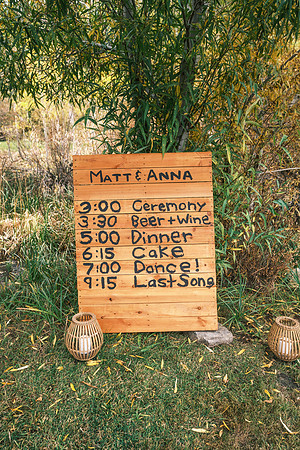 Matt & Anna
3:00 Ceremony
3:30 Beer + Wine
5:00 Dinner
6:15 Cake
7:00 Dance!
9:15 Last Song